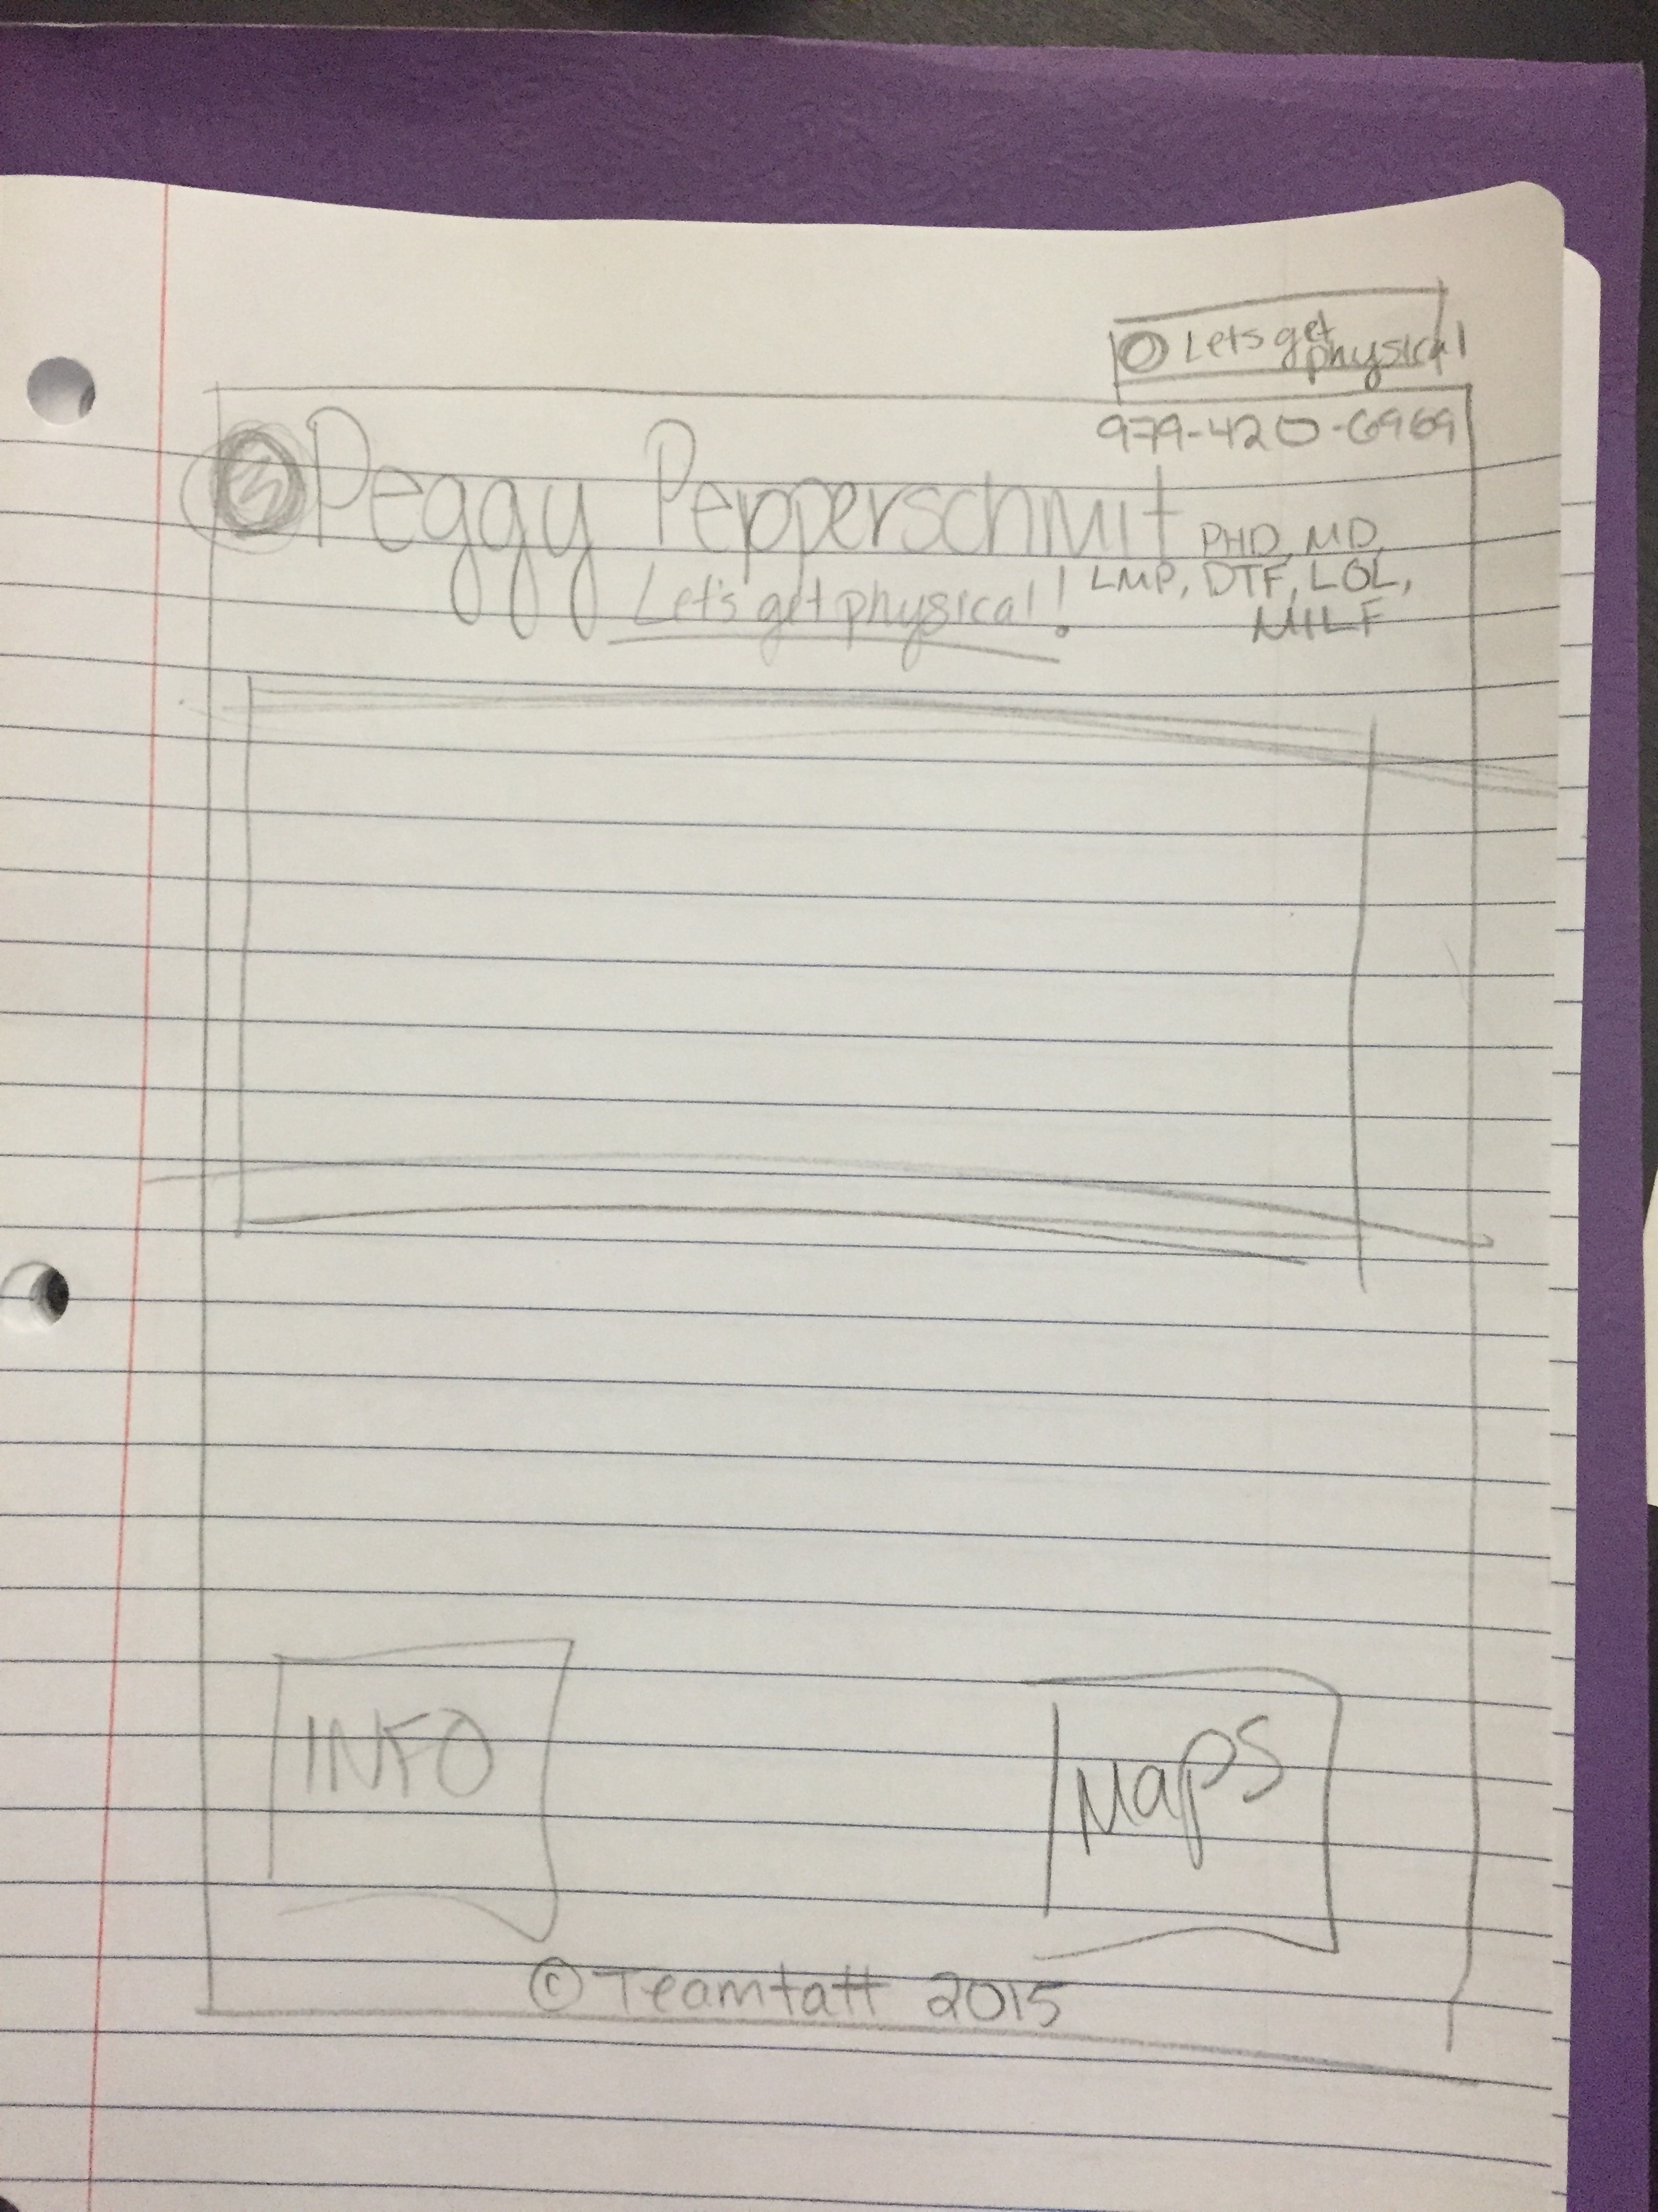 Lets get
physical
979-420-6969
Peggy Pepperschmit PHD, MD,
LMP, DTF, LOL,
MILF
Let's get physical!
INFO
Maps
© Teamtatt 2015